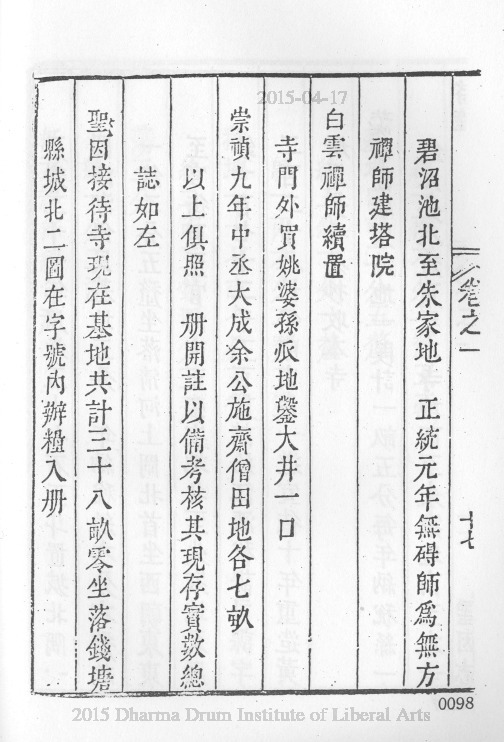 2015-04-17
卷之一
十七
碧沼池北至朱家地　正統元年無碍師爲無方
禪師建塔院
白雲禪師續置
寺門外買姚婆孫派地鑿大井一口
崇禎九年中丞大成余公施齋僧田地各七畝
以上俱照　册開註以備考核其現存實數總
誌如左
聖因接待寺現在基地共計三十八畝零坐落錢塘
縣城北二圖在字號內辦糧入册
0098
2015 Dharma Drum Institute of Liberal Arts